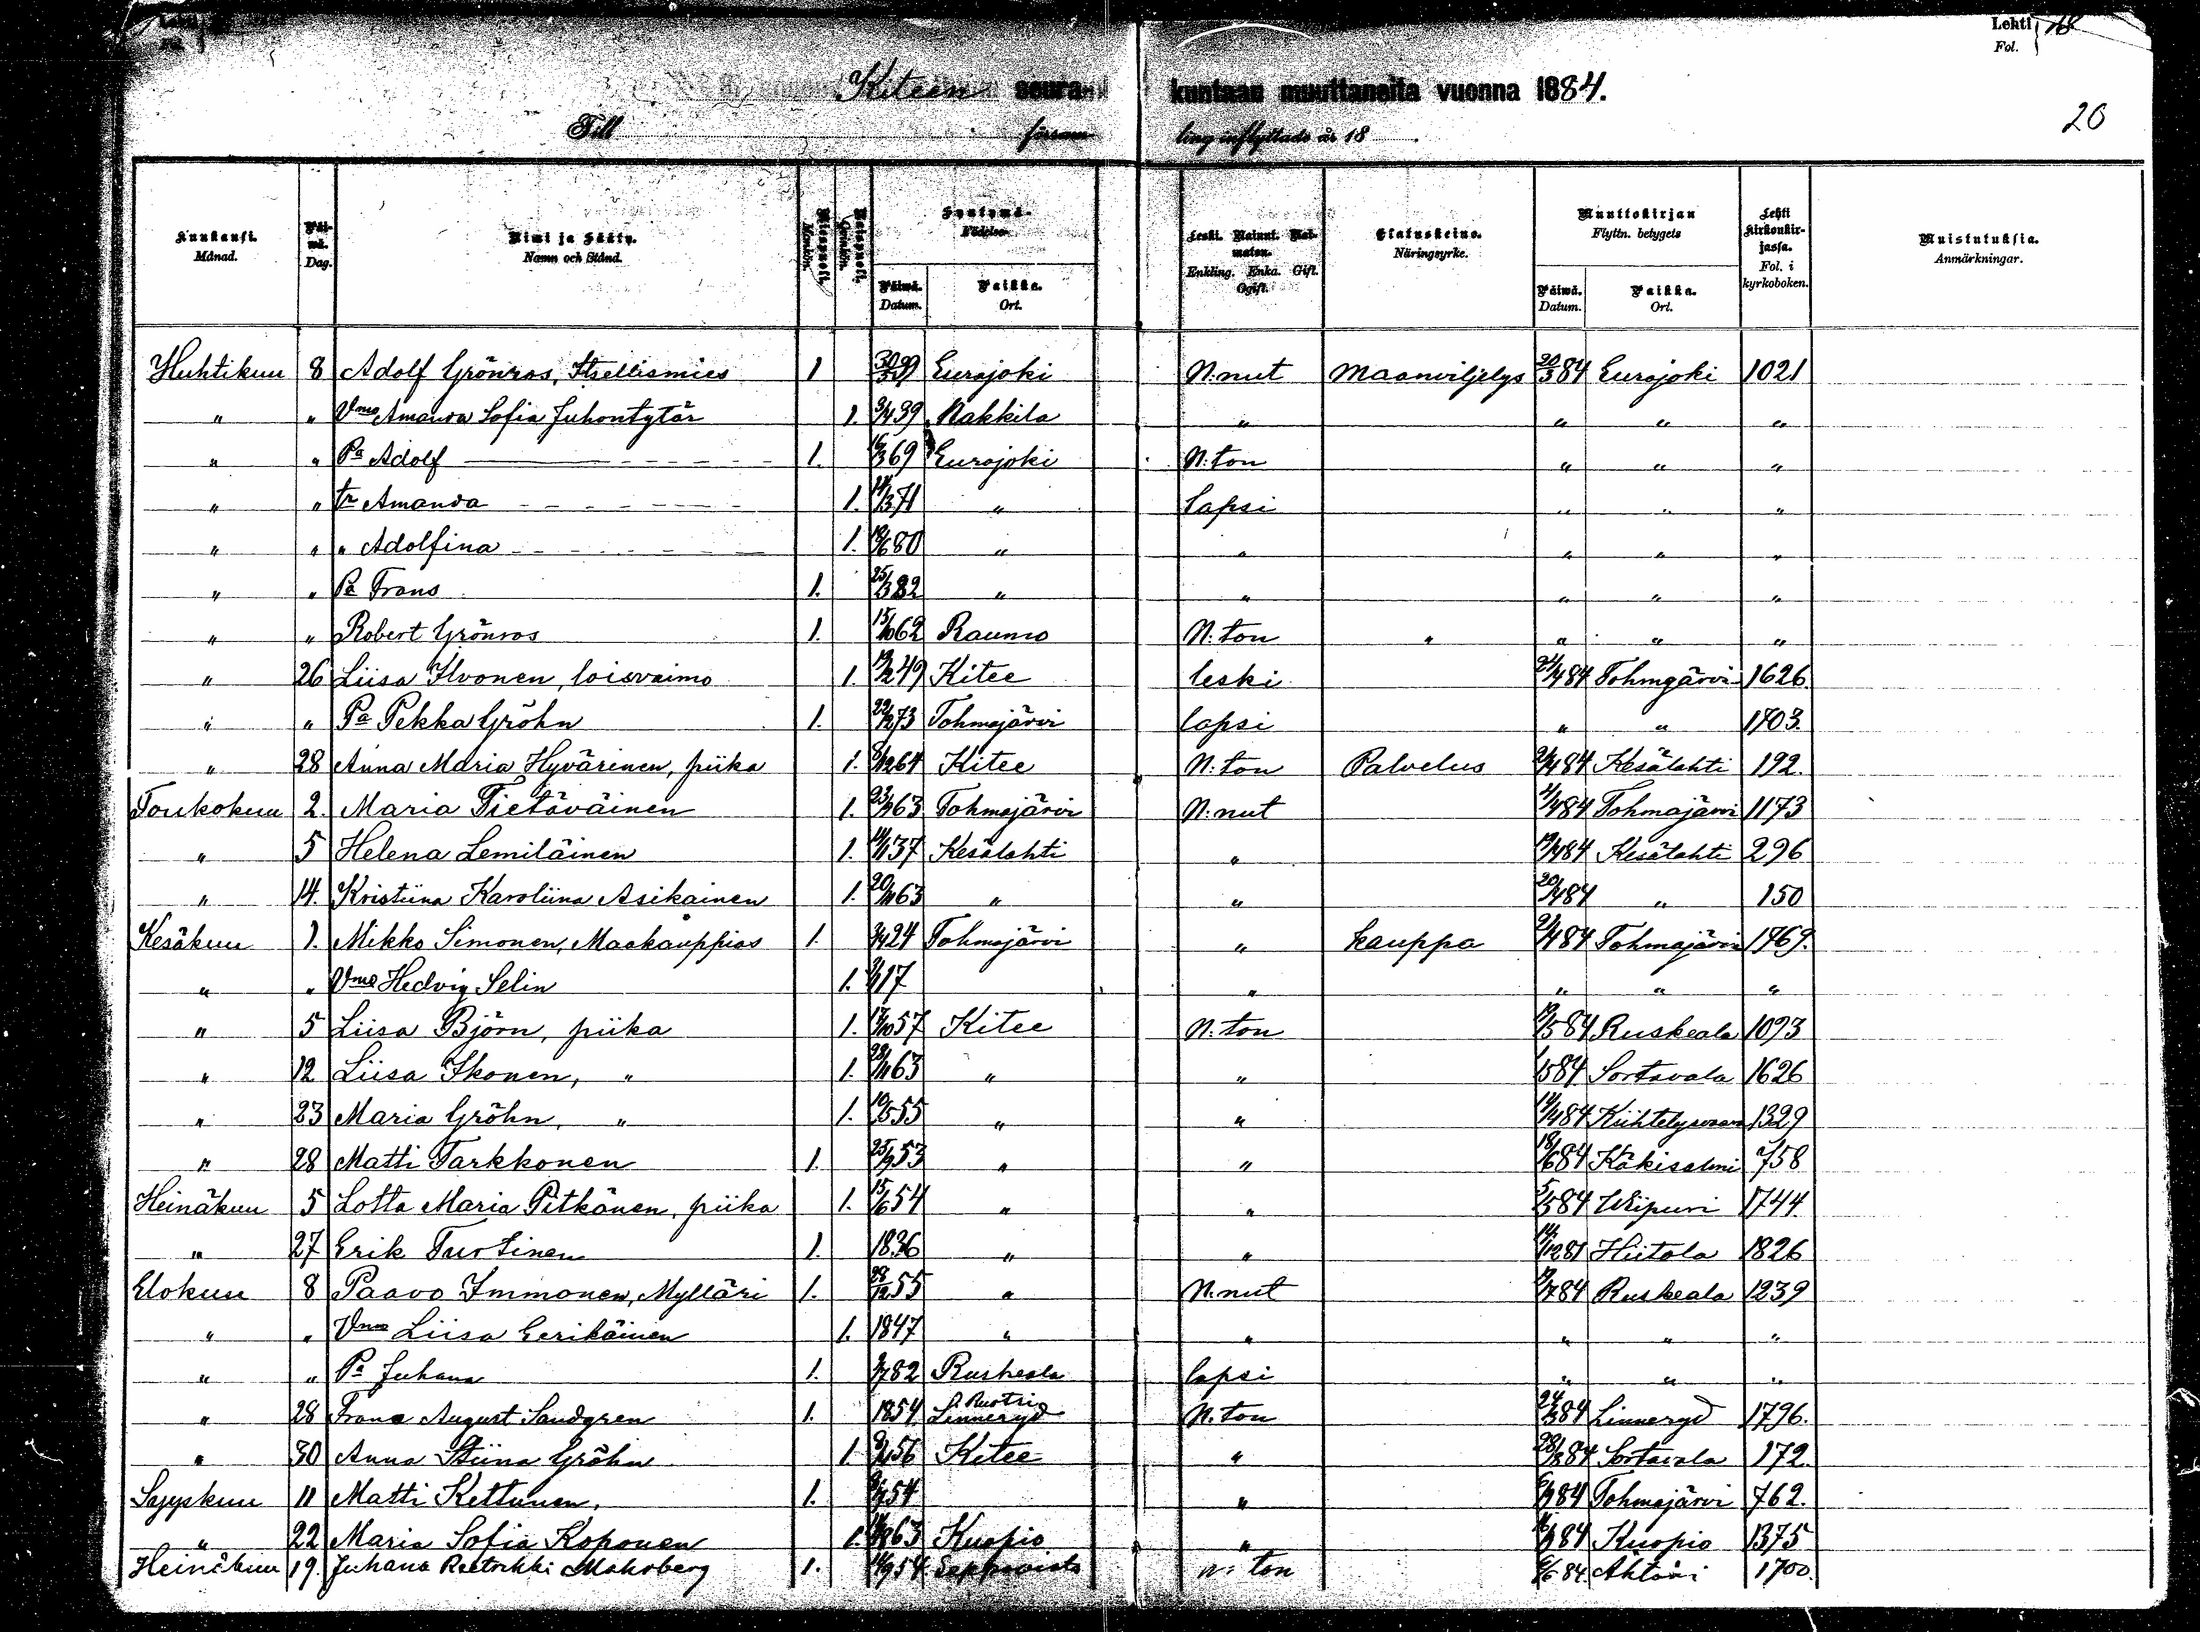 Lehti 18
Fol.
Kiteen seurakuntaan muuttaneita vuonna 1884.
Till försam ling inflyttade år 18
20
Kuukausi. Månad. Päivä. Dag. Nimi ja Sääty. Namn och Stånd. Miespuoli. Mankön. Naispuoli. Qvinkön. Syntymä. Födelse. Päivä. Datum. Paikka. Ort. Leski. Nainut. Naimaton. Enkling. Enka. Gift. Ogift. Elatuskeino. Näringsyrke. Muuttokirjan Flyttn. betygets Päivä. Datum. Paikka. Ort. Lehti kirkonkirjassa. Fol. i kyrkoboken. Muistutuksia. Anmärkningar.
Huhtikuu 8 Adolf Grönros, Itsellismies 1 Eurajoki N:nut Maanviljelys 20/3 84 Eurajoki 1021
" " Vmo Amanda Sofia Juhontytär 1. 3/4 39 Nakkila " " " "
" " Pa Adolf 1. 16/3 69 Eurajoki N:ton " " "
" " tr Amanda 1. 14/3 71 " lapsi " " "
" " " Adolfina 1. 18/6 80 " " " " "
" " Pa Frans 1. 25/3 82 " " " " "
" " Robert Grönros 1. 15/10 62 Raumo N:ton " " " "
" 26 Liisa Ilvonen, loisvaimo 1. 19/2 49 Kitee leski 21/4 84 Tohmajärvi 1626.
" " Pa Pekka Gröhn 1. 22/2 73 Tohmajärvi lapsi " " 1703.
" 28 Anna Maria Hyvärinen, piika 1. 8/12 64 Kitee N:ton Palvelus 84 Kesälahti 192.
Toukokuu 2. Maria Tietäväinen 1. 63 Tohmajärvi N:nut 84 Tohmajärvi 1173
" 5 Helena Lemiläinen 1. 37 Kesälahti " 19/4 84 Kesälahti 296
" 14. Kristiina Karoliina Asikainen 1. 20/11 63 " " 20/4 84 " 150
Kesäkuu 1. Mikko Simonen, Maakauppias 1. 24 Tohmajärvi " kauppa 84 Tohmajärvi 1769.
" " Vmo Hedvig Selin 1. 17 " " " "
" 5 Liisa Björn, piika 1. 17/10 57 Kitee N:ton 84 Ruskeala 1093
" 12 Liisa Ikonen, " 1. 28/11 63 " " 84 Sortavala 1626
" 23 Maria Gröhn, " 1. 10/5 55 " " 14/4 84 Kiihtelysvaara 1329
" 28 Matti Tarkkonen 1. 25/9 53 " " 18/6 84 Käkisalmi 758
Heinäkuu 5 Lotta Maria Pitkänen, piika 1. 15/6 54 " " 5/5 84 Wiipuri 1744
" 27 Erik Tuotinen 1. 1836 " " 14/12 81 Hiitola 1826
Elokuu 8 Paavo Immonen, Mylläri 1. 28/12 55 " N:nut 84 Ruskeala 1239
" " Vmo Liisa Eerikäinen 1. 1847 " " " " "
" " Pa Juhana 1. 82 Ruskeala lapsi " " "
" 28 Frans August Sandgren 1. 1854 Linneryd N:ton 84 Linneryd 1796.
" 30 Anna Stiina Gröhn 1 56 Kitee " 28/8 84 Sortavala 172.
Syyskuu 11 Matti Kettunen, 1. 54 " 84 Tohmajärvi 762.
" 22 Maria Sofia Koponen 1. 63 Kuopio " 84 Kuopio 1375
Heinäkuu 19. Juhana Reetrikki 1. 54 n: ton 84. Ähtäri 1700.